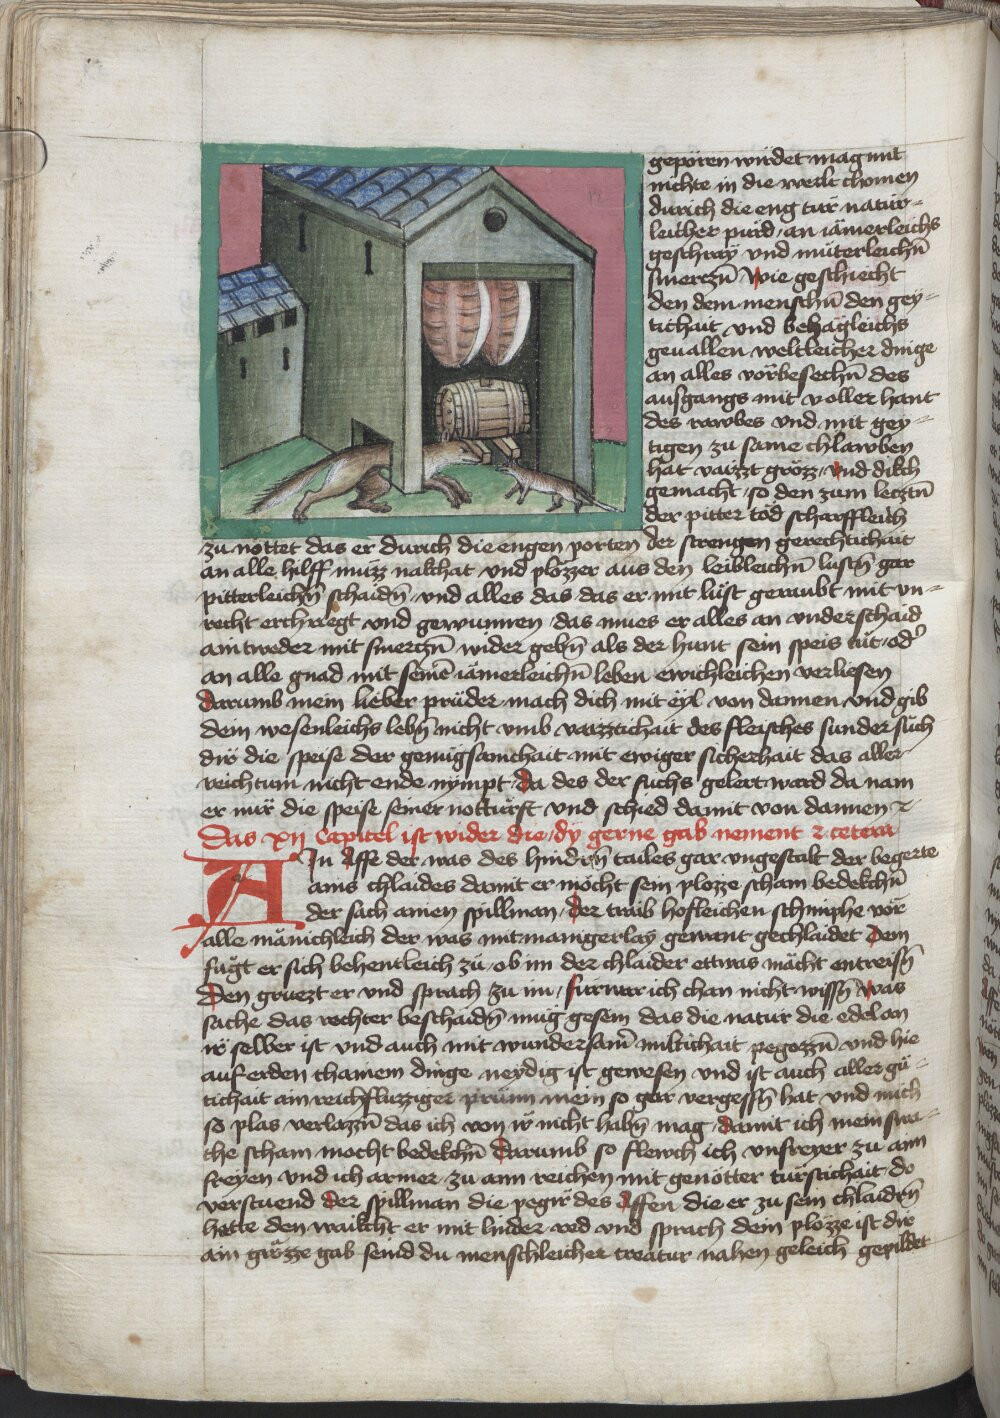 geporen wirdet mag mit
nichte in die werlt chomen
durich die eng tür natür-
leicher purd an iämerleichs
geschray vnd müterleichn̄
smerczn̄ Wie geschiecht
den dem menschn̄ den gey-
tichait vnd behägleichs
geuallen weltleicher dinge
an alles vorbesechn̄ des
ausgangs mit voller hant
des rawbes vnd mit gey-
tigen zu same chlawben
hat vaizzt grözz vnd dikch
gemacht so den zum lecztn̄
der pitter tod scharffleich
zu nöttet das er durich die engen porten der strengen gerechtichait
an alle hilff muzz nakchat vnd plözzer aus den leibleichn̄ lustn̄ gar
pitterleichn̄ schaidn̄ vnd alles das das er mit lust geraubt mit vn-
recht erchregt vnd gewunnen das mues er alles an vnderschaid
aintweder mit smerczn̄ wider gebn̄ als der hunt sein speis tüt od̓
an alle gnad mit seinē iämerleichn̄ leben ewichleichen verliesen
Darumb mein lieber prüder mach dich mit eyl von dannen vnd gib
dein wesenleichs lebn̄ nicht vmb vaizztichait des fleisches sunder such
dir die speise der genügsamchait mit ewiger sicherhait das aller
reichtum nicht ende nympt Da des der fuchs gelert ward da nam
er nür die speise seiner notturft vnd schied damit von dannen ⁊
Das xii Capitel ist wider die dy gerne gab nement ⁊ cetera
AIn Affe der was des hindern̄ tailes gar vngestalt der begerte
ains chlaides damit er möcht sein plozze scham bedekchn̄
der sach ainen spillman der traib hofleichen schimphe vor
alle mänichleich der was mit manigerlay gewant gechlaidet Dem
fügt er sich behentleich zu ob im der chlaider ettwas mächt entreisn̄
Den gruezt er vnd sprach zu im fürwar ich chan nicht wissn̄ Was
sache das rechter beschaidn̄ mug gesein das die natur die edel an
ir selber ist vnd auch mit wundersam̄ miltichait pegozzn̄ vnd hie
auf erden chainem dinge neydig ist gewesen vnd ist auch aller gü-
tichait ain reichfluzziger prünn mein so gar vergessn̄ hat vnd mich
so plas verlazzn̄ das ich von ir nicht habn̄ mag damit ich mein swa-
che scham mocht bedekchn̄ Darumb so flewch ich vnfreyer zu ain
freyen vnd ich armer zu ann reichen mit genötter türstichait do
verstuend der spillman die pegir des Affen die er zu sein chlaidrn̄
hette den waikcht er mit linder red vnd sprach dein plözze ist dir
ain grözze gab seind du menschleicher creatur nahen geleich gepildet